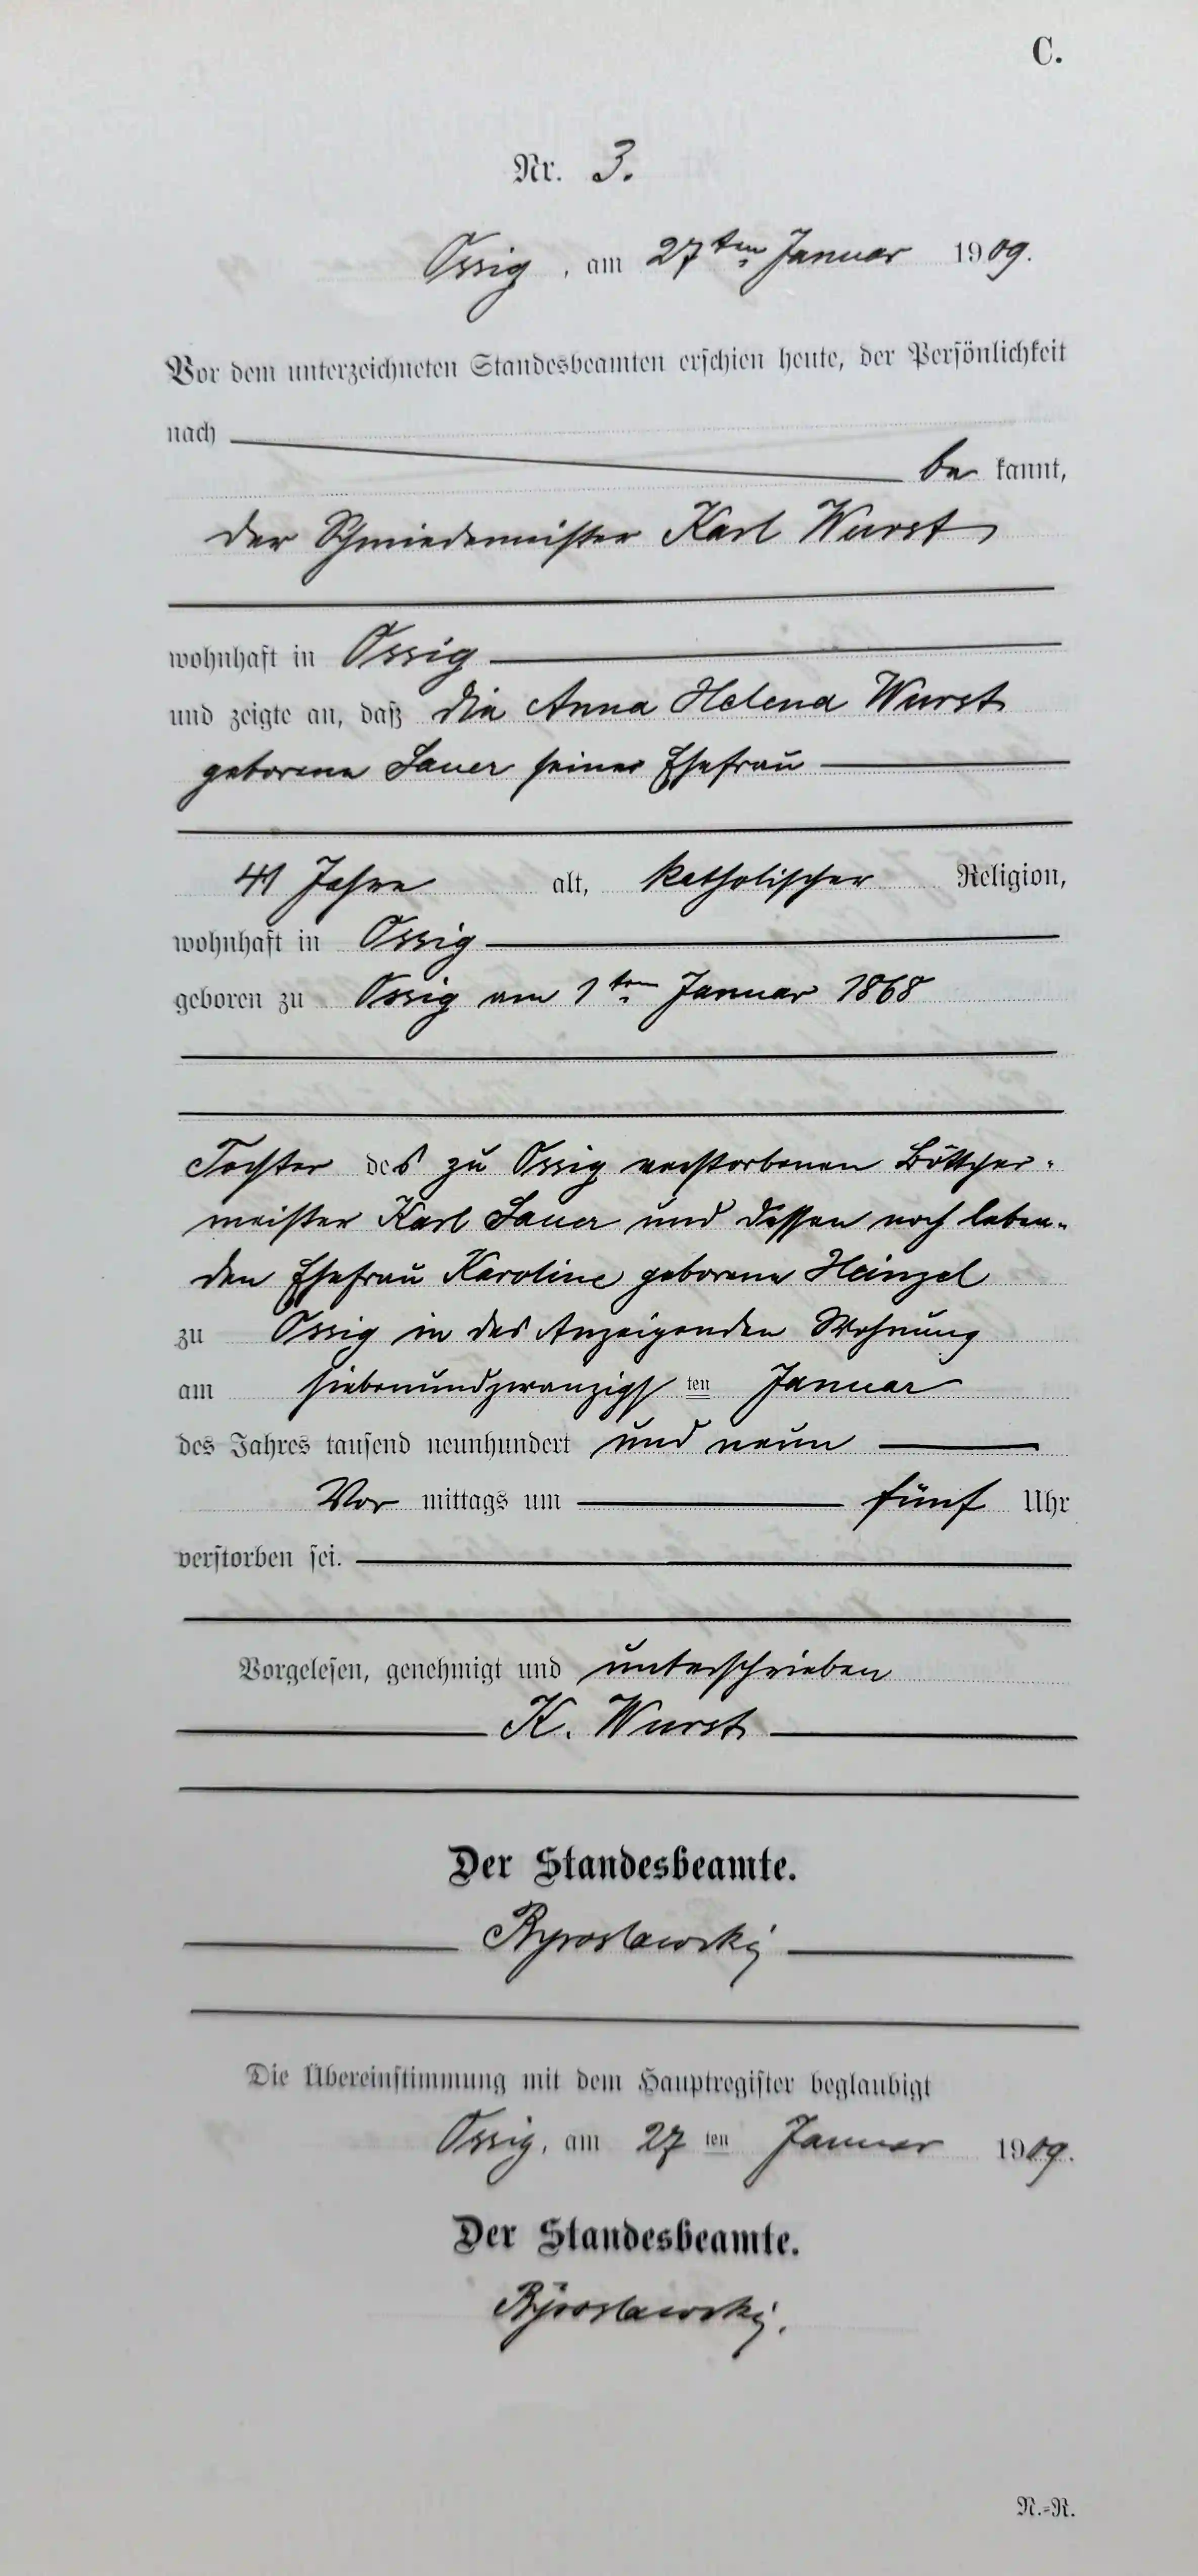 C.
Nr. 3.
Ossig, am 27ten Januar 1909.
Vor dem unterzeichneten Standesbeamten erschien heute, der Persönlichkeit
nach
be kannt,
der Schmiedemeister Karl Wurst
wohnhaft in Ossig
und zeigte an, daß die Anna Helena Wurst
geborene Sauer seiner Ehefrau
41 Jahre alt, katholischer Religion,
wohnhaft in Ossig
geboren zu Ossig am 1ten Januar 1868
Tochter des zu Ossig verstorbenen Böttcher-
meister Karl Sauer und dessen noch leben-
den Ehefrau Karoline geborene Heinzel
zu Ossig in des Anzeigenden Wohnung
am siebenundzwanzigsten Januar
des Jahres tausend neunhundert und neun
Vor mittags um fünf Uhr
verstorben sei.
Vorgelesen, genehmigt und unterschrieben
K. Wurst
Der Standesbeamte.
Die Übereinstimmung mit dem Hauptregister beglaubigt
Ossig, am 27ten Januar 1909.
Der Standesbeamte.
N.=R.